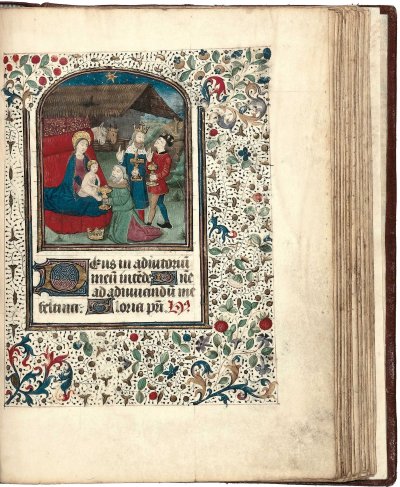 Deus in adiutoriū
meū intēde Dñe
ad adiuuandū me
festina: Gloria pr̄i.